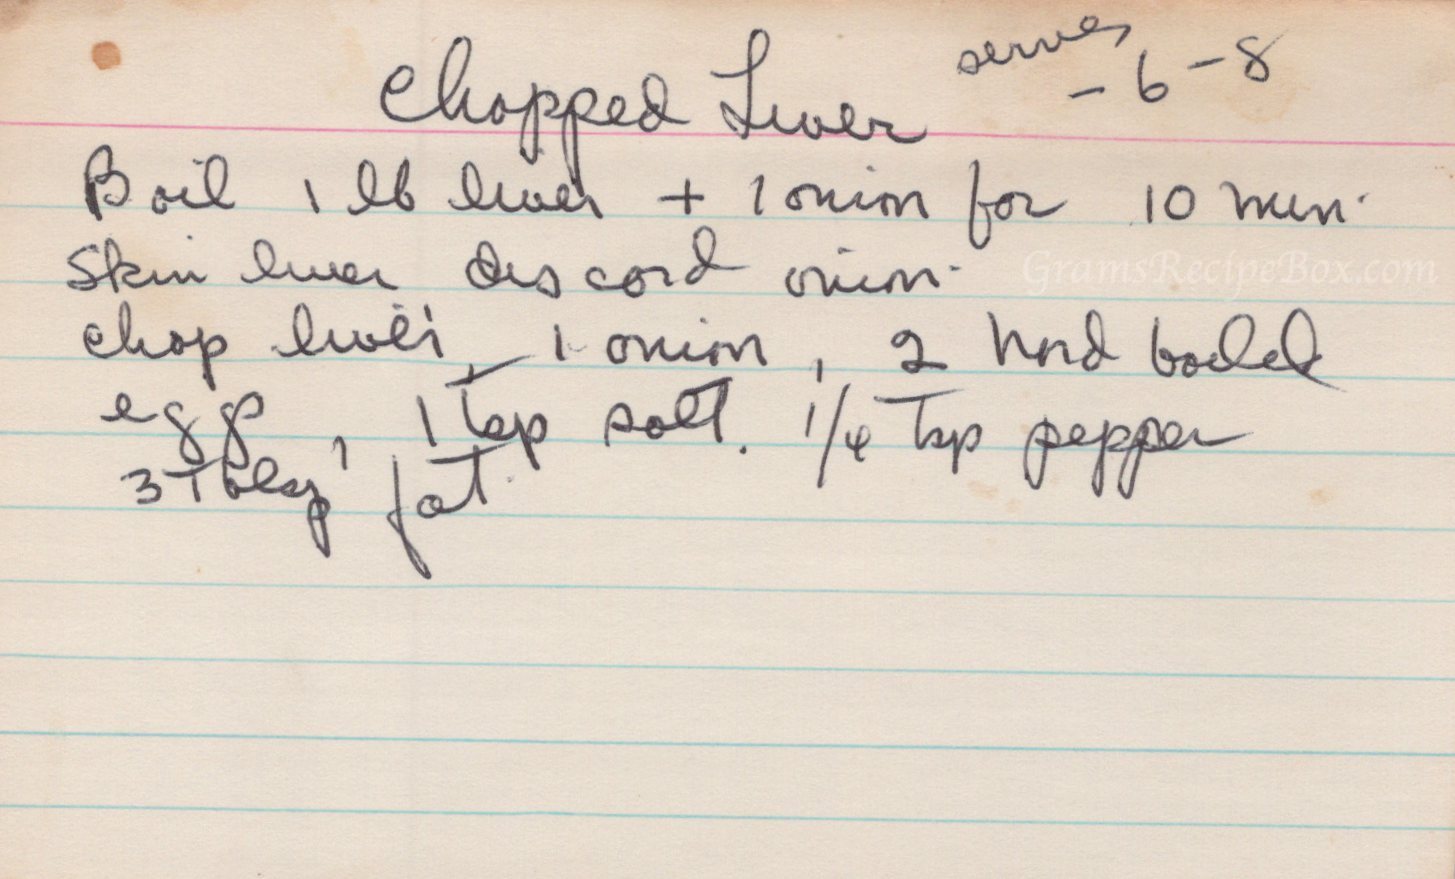 Chopped Liver serves
- 6 - 8
Boil 1 lb liver + 1 onion for 10 min.
Skin liver discord onion.
GramsRecipeBox.com
chop liver, 1 onion, 2 hard boiled
eggs, 1 tsp salt. 1/4 Tsp pepper
3 Tblsp fat.